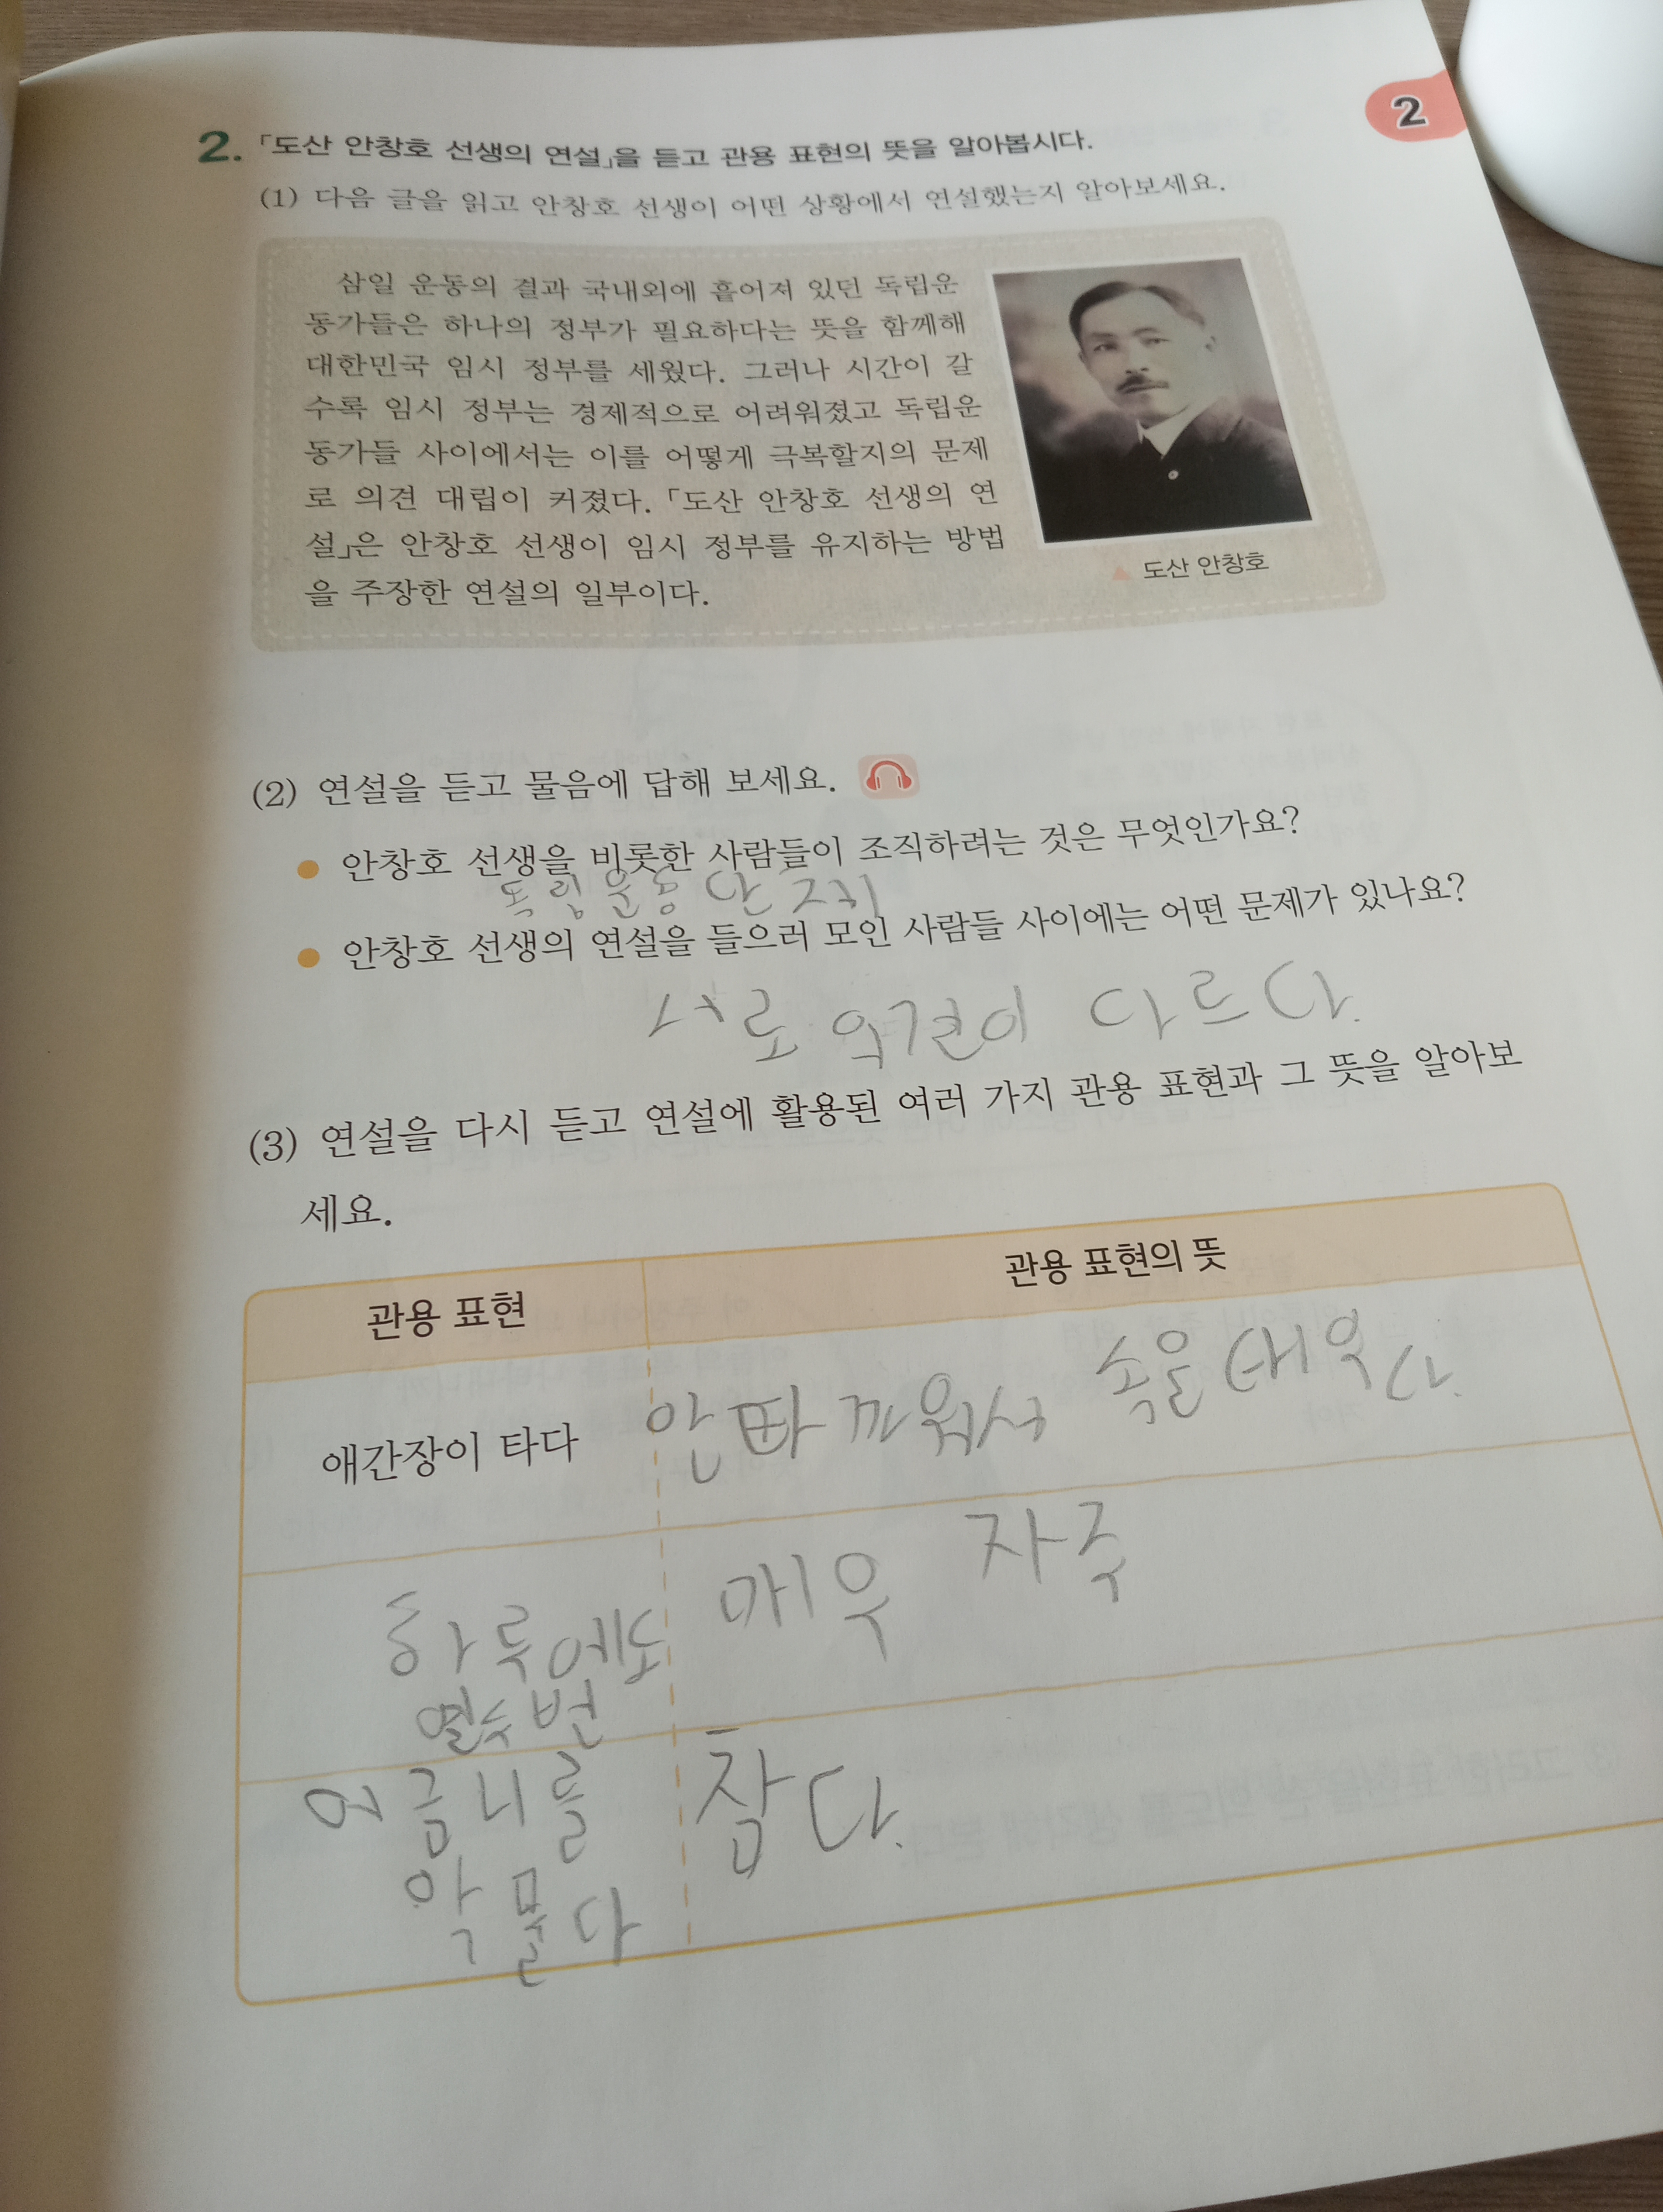 2
2. 「도산 안창호 선생의 연설」을 듣고 관용 표현의 뜻을 알아봅시다.
(1) 다음 글을 읽고 안창호 선생이 어떤 상황에서 연설했는지 알아보세요.
삼일 운동의 결과 국내외에 흩어져 있던 독립운
동가들은 하나의 정부가 필요하다는 뜻을 함께해
대한민국 임시 정부를 세웠다. 그러나 시간이 갈
수록 임시 정부는 경제적으로 어려워졌고 독립운
동가들 사이에서는 이를 어떻게 극복할지의 문제
로 의견 대립이 커졌다. 「도산 안창호 선생의 연
설」은 안창호 선생이 임시 정부를 유지하는 방법
을 주장한 연설의 일부이다.
▲ 도산 안창호
(2) 연설을 듣고 물음에 답해 보세요.
● 안창호 선생을 비롯한 사람들이 조직하려는 것은 무엇인가요?
독립운동 단체
● 안창호 선생의 연설을 들으러 모인 사람들 사이에는 어떤 문제가 있나요?
서로 의견이 다르다.
(3) 연설을 다시 듣고 연설에 활용된 여러 가지 관용 표현과 그 뜻을 알아보
세요.
관용 표현
관용 표현의 뜻
애간장이 타다
안빠까워서 속을 태우다.
하루에도
열두 번
매우 자주
어금니를
악물다
참다.